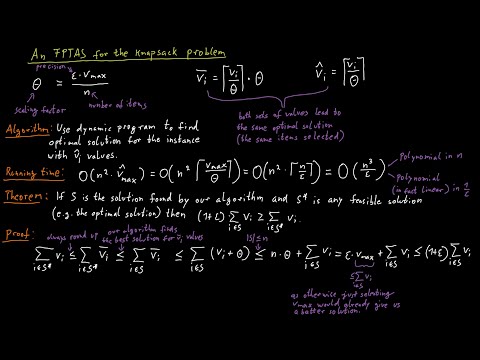 An FPTAS for the Knapsack problem
precision
θ = ε · v_max / n
scaling factor
number of items
v̄_i = ⌈v_i / θ⌉ · θ
v̂_i = ⌈v_i / θ⌉
both sets of values lead to
the same optimal solution
(the same items selected)
Algorithm: Use dynamic program to find
optimal solution for the instance
with v̂_i values.
Running time: O(n² · v̂_max) = O(n² ⌈v_max / θ⌉) = O(n² · ⌈n / ε⌉) = O(n³ / ε)
Polynomial in n
Polynomial
(in fact linear) in 1/ε
Theorem: If S is the solution found by our algorithm and S* is any feasible solution
(e.g. the optimal solution) then (1+ε) Σ_{i∈S} v_i ≥ Σ_{i∈S*} v_i
Proof:
always round up
our algorithm finds
the best solution for v̄_i values
|S| ≤ n
Σ_{i∈S*} v_i ≤ Σ_{i∈S*} v̄_i ≤ Σ_{i∈S} v̄_i ≤ Σ_{i∈S} (v_i + θ) ≤ n · θ + Σ_{i∈S} v_i = ε · v_max + Σ_{i∈S} v_i ≤ (1+ε) Σ_{i∈S} v_i
≤ Σ_{i∈S} v_i
as otherwise just selecting
v_max would already give us
a better solution.